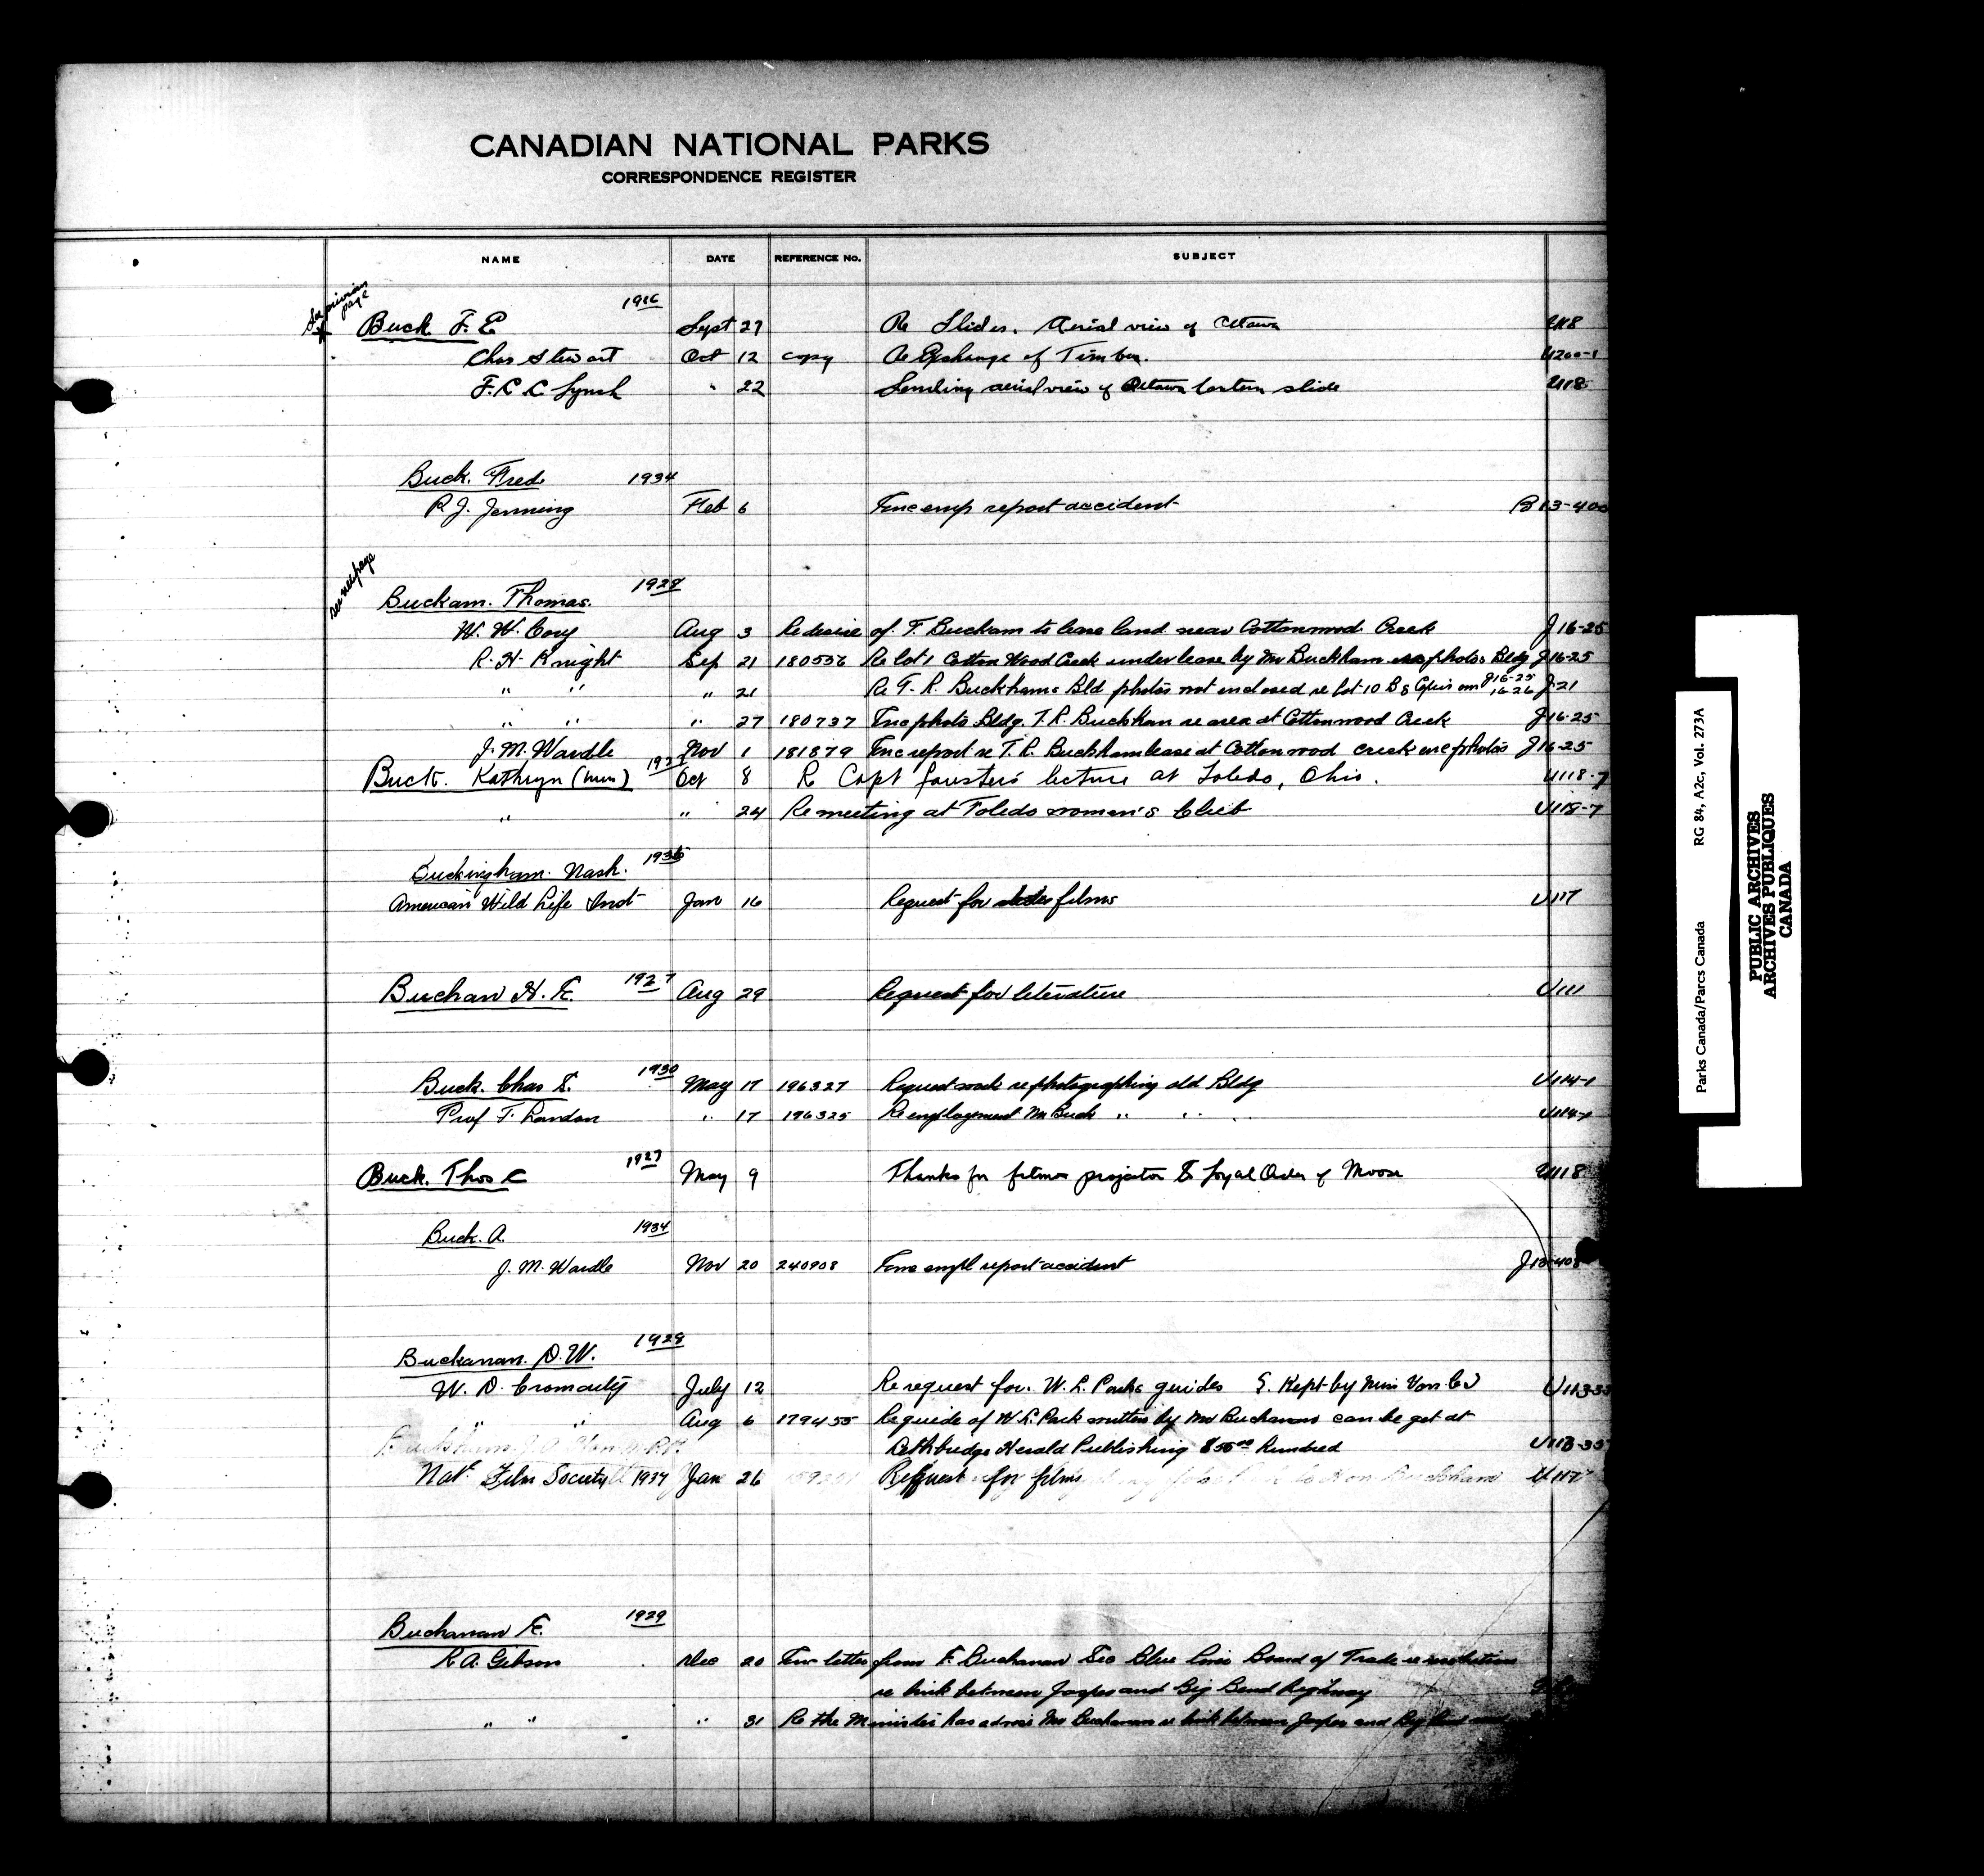 CANADIAN NATIONAL PARKS
CORRESPONDENCE REGISTER
NAME DATE REFERENCE No. SUBJECT
See previous page
Buck F. E 1916 Sept 27 Re Slides. Aerial view of Ottawa U118
Chas Stewart Oct 12 copy Re Exchange of Timber. U200-1
F. C. C. Lynch " 22 Sending aerial view of Ottawa lantern slide U18
Buck. Fred. 1934
R J. Jenning Feb 6 Enc emp report accident B13-400
see next page
Buckam. Thomas. 1928
W. W. Cory Aug 3 Re desire of T. Bucham to lease land near Cottonwood Creek J16-25
R. H. Knight Sep 21 180556 Re lot 1 Cotton Wood Creek under lease by Mr Buckham photos Bldg J16-25
" " " 21 Re T. R. Buckhams Bld photos not enclosed re lot 10 B 8 J16-25 16-26 J.21
" " " 27 180737 Enc photo Bldg. T. R. Buckham re area at Cottonwood Creek J16-25
J. M. Wardle Nov 1 181879 Enc report re T. R. Buckham lease at Cottonwood creek enc photos J16-25
Buck. Kathryn (Mrs) Oct 8 R Capt forester's lecture at Toledo, Ohio. U118-7
" " 24 Re meeting at Toledo women's Club U118-7
Buckingham. Nash. 1936
American Wild Life Inst Jan 16 Request for films U117
Buchan H. E. 1927 Aug 29 Request for literature U111
Buck. Chas S. 1930 May 17 196327 Request work re photographing old Bldg U114-1
Prof F. Landon " 17 196325 Re employment Mr Buck " " " U114-1
Buck. Thos C 1927 May 9 Thanks for films projector to Loyal Order of Moose U118
Buck. A. 1934
J. M. Wardle Nov 20 240908 Enc empl report accident J13-408
Buckanan. D. W. 1928
W. D. Cromarty July 12 Re request for. W. L. Parks guides S. Kept by Miss U113-35
" " Aug 6 179455 Re guide of W. L. Park written by Mr Buchanan can be got at
Lethbridge Herald Publishing $50⁰⁰ Hundred U113-35
Nat. Film Society 1937 Jan 26 Request for films U117
Buchanan F. 1929
R. A. Gibson Dec 20 Enc letter from F. Buchanan Sec Blue River Board of Trade re resolution
re link between Jasper and Big Bend Highway
" " " 31 Re the Minister has advis Mr Buchanan re link between Jasper and Big Bend
Parks Canada/Parcs Canada RG 84, A2c, Vol. 273A
PUBLIC ARCHIVES
ARCHIVES PUBLIQUES
CANADA